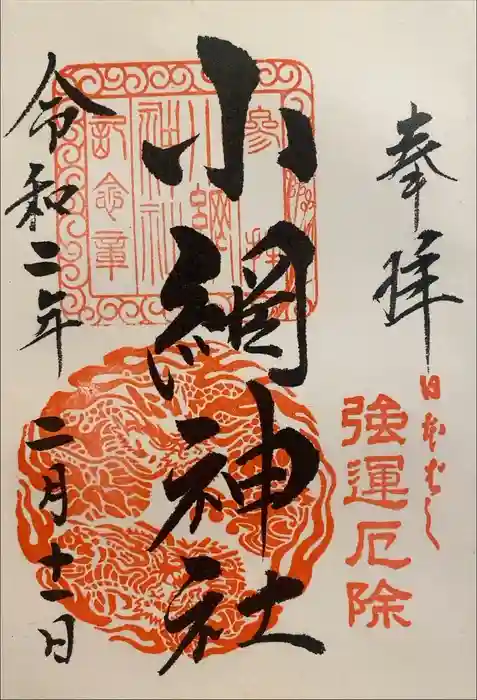 奉拝
日本ばし
強運厄除
小網神社
参拝
小網
神社
記念章
令和二年 二月十一日